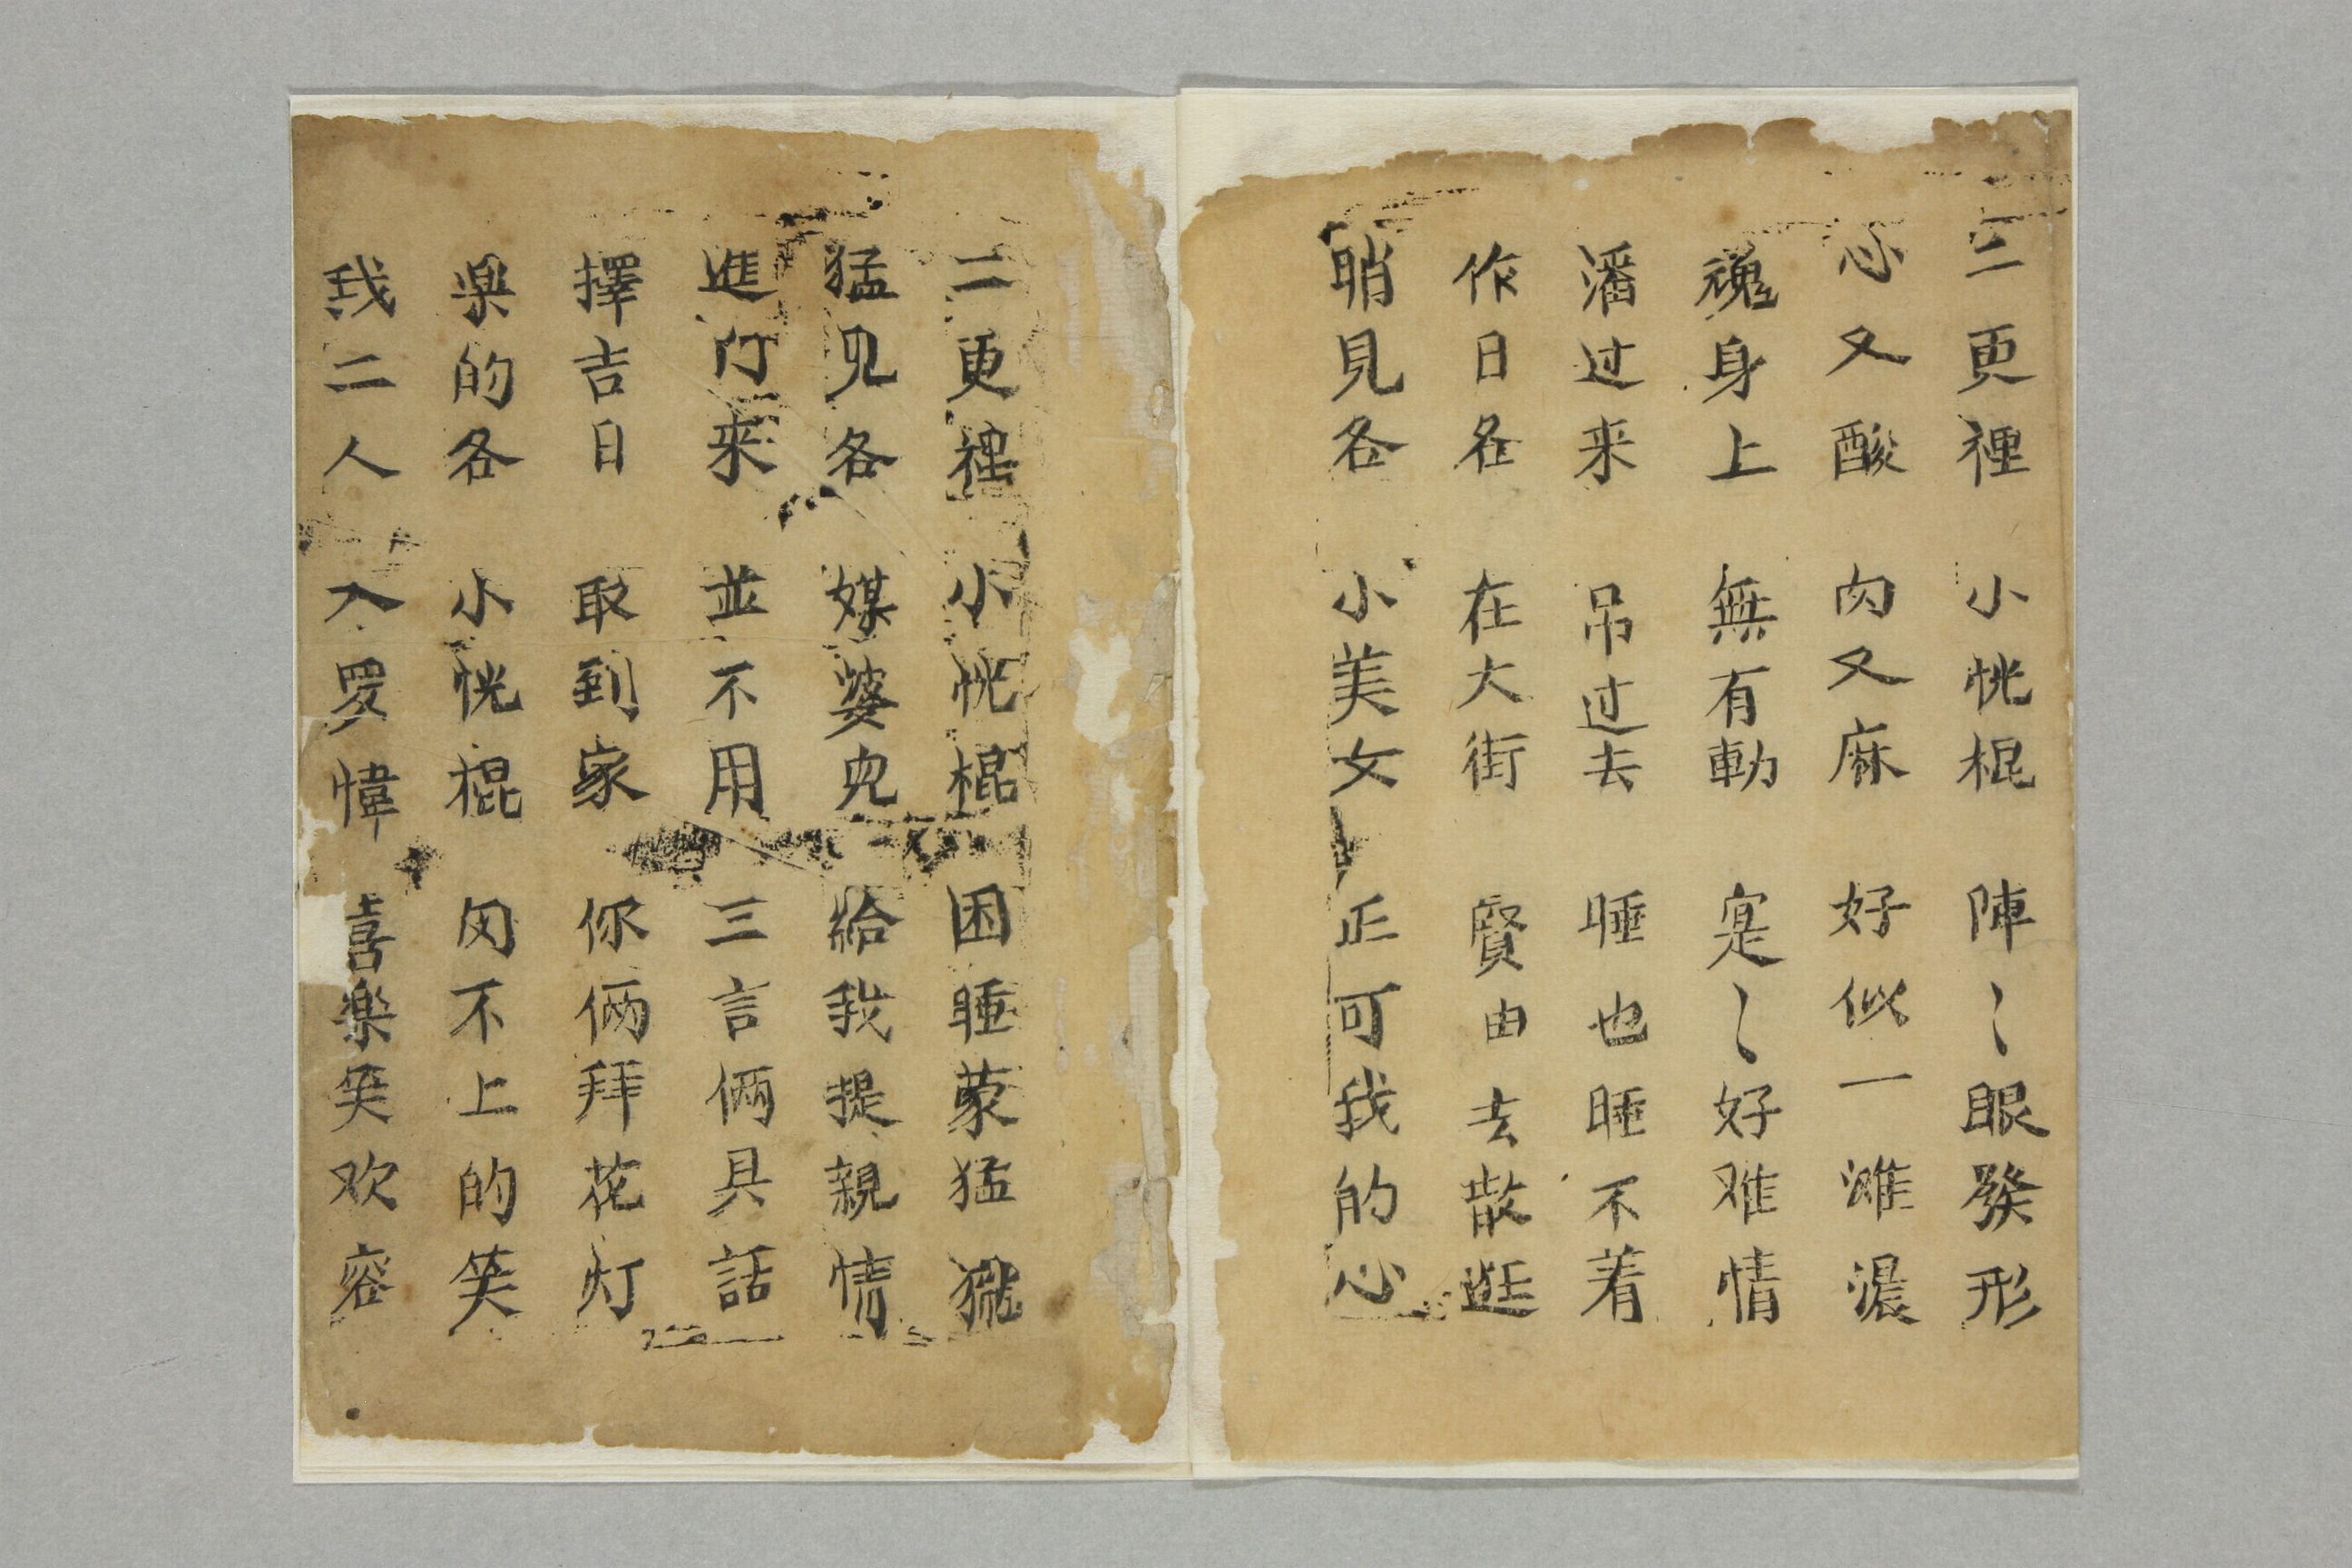 二更裡 小恍棍 陣〻眼發形
心又酸 肉又麻 好似一滩濃
魂身上 無有動 寔〻好难情
潘过来 吊过去 睡也睡不着
作日各 在大街 賢由去散逛
睄見各 小美女 正可我的心
二更裡 小恍棍 困睡蒙猛
猛見各 媒婆兒 給我提親情
進门来 並不用 三言俩具話
擇吉日 取到家 你俩拜花灯
樂的各 小恍棍 肉不上的笑
我二人 入罗幃 喜樂笑欢容